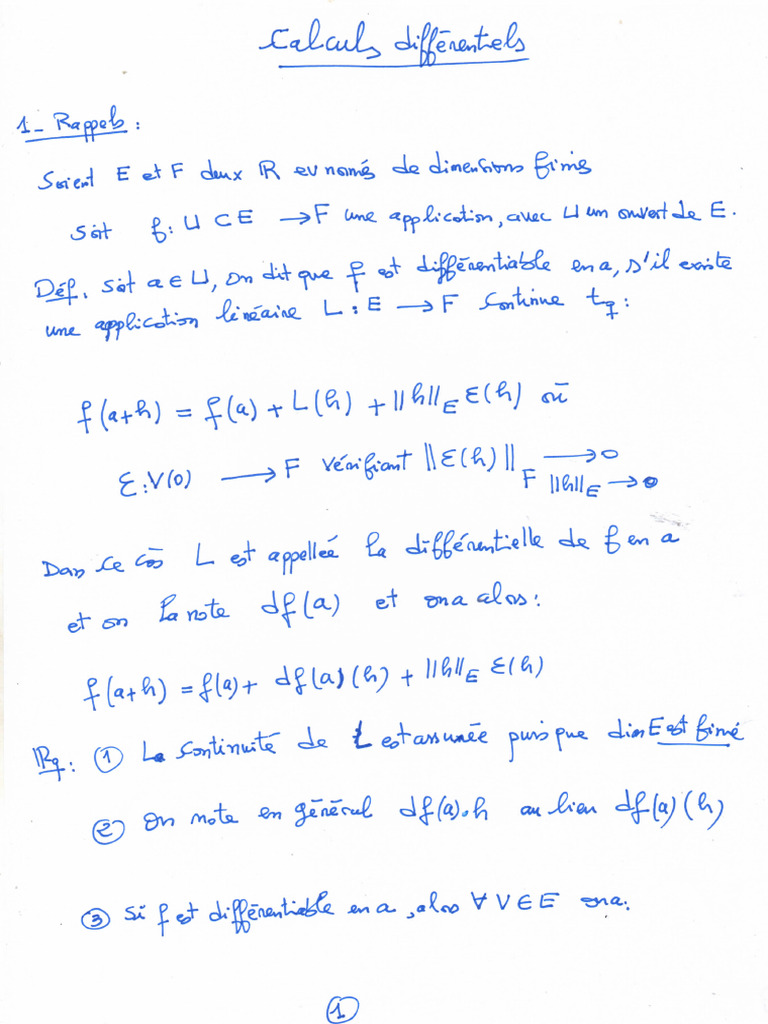 Calculs différentiels
1- Rappels :
Soient E et F deux R ev només de dimensions finis
Soit f: U ⊂ E → F une application, avec U un ouvert de E.
Déf. Soit a ∈ U, on dit que f est différentiable en a, s'il existe
une application linéaire L : E → F continue tq :
f(a+h) = f(a) + L(h) + ||h||_E ε(h) où
ε: V(0) → F vérifiant ||ε(h)||_F → 0
||h||_E → 0
Dans ce cas L est appelleé la différentielle de f en a
et on la note df(a) et on a alors :
f(a+h) = f(a) + df(a)(h) + ||h||_E ε(h)
Rq : ① La continuité de L est assurée puisque dim E est finié
② On note en général df(a).h au lieu df(a)(h)
③ Si f est différentiable en a, alos ∀ V ∈ E on a :
①